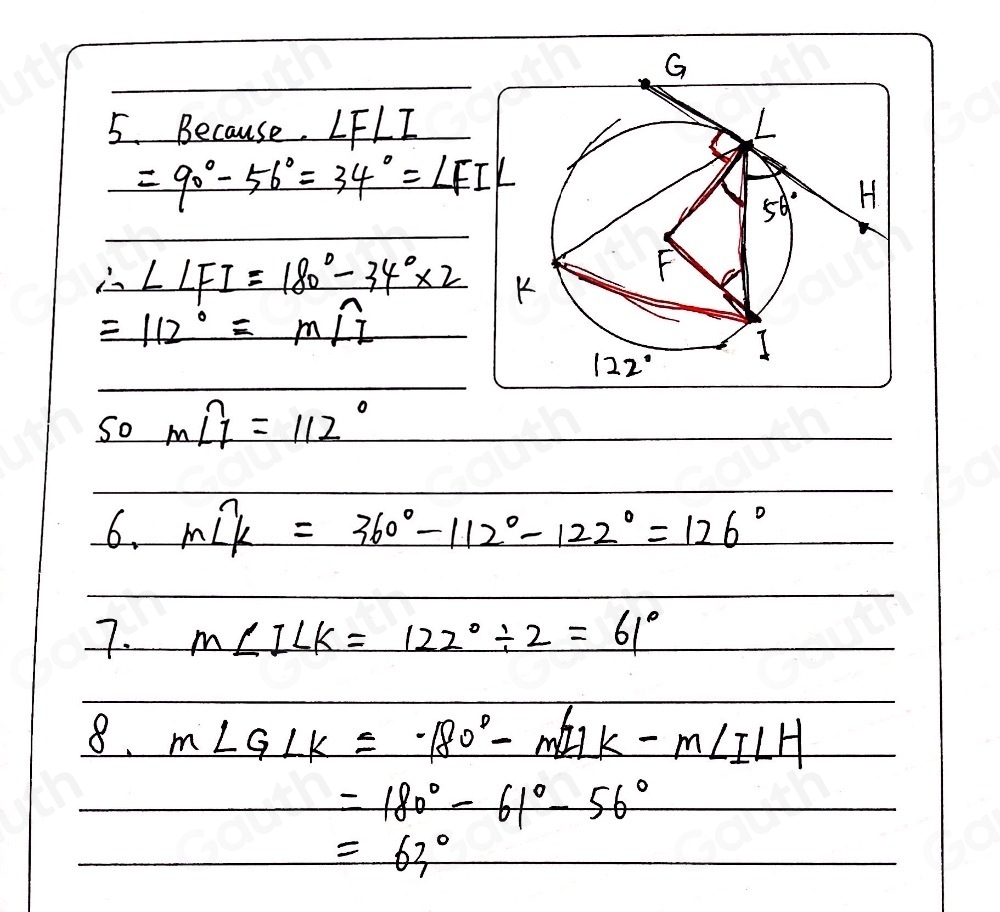 5. Because. ∠FLI
= 90° - 56° = 34° = ∠FIL
∴ ∠LFI = 180° - 34° × 2
= 112° = m L͡I
so m L͡I = 112°
6. m L͡K = 360° - 112° - 122° = 126°
7. m∠ILK = 122° ÷ 2 = 61°
8. m∠GLK = 180° - m∠ILK - m∠ILH
= 180° - 61° - 56°
= 63°
G
L
56°
H
F
K
I
122°
Gauth